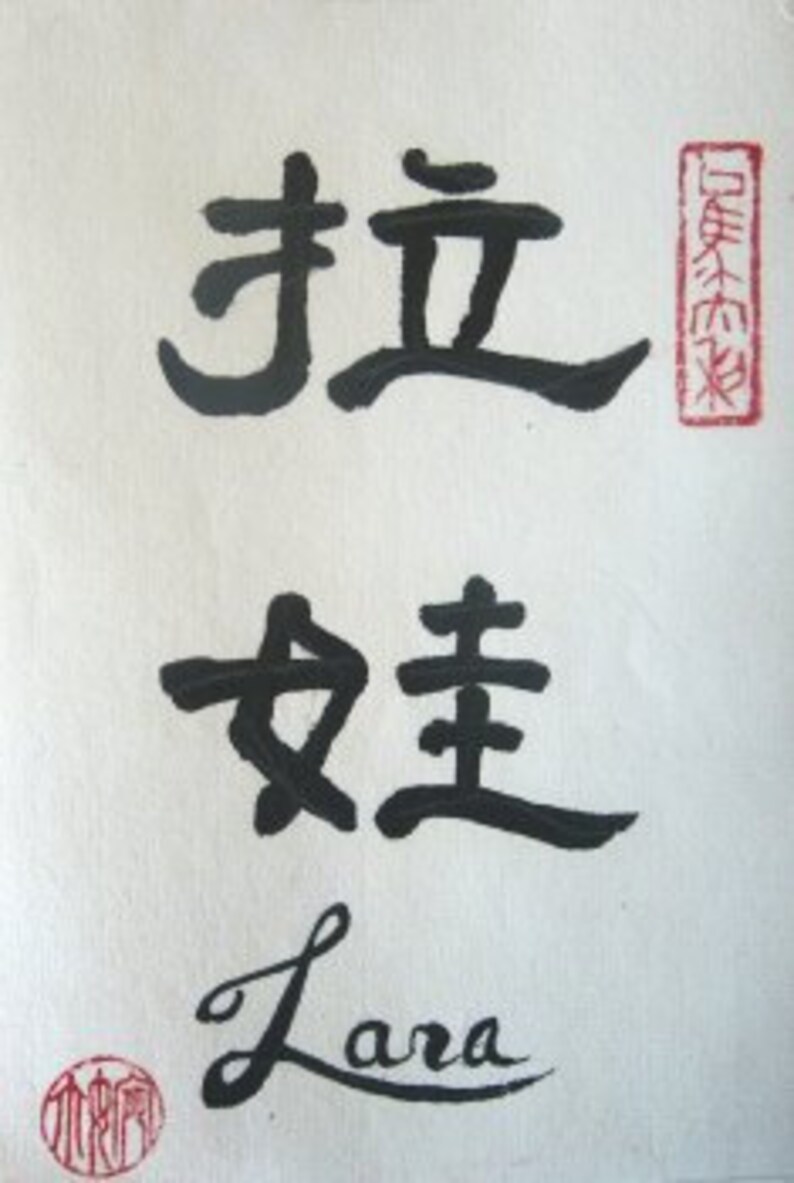 拉
娃
Lara